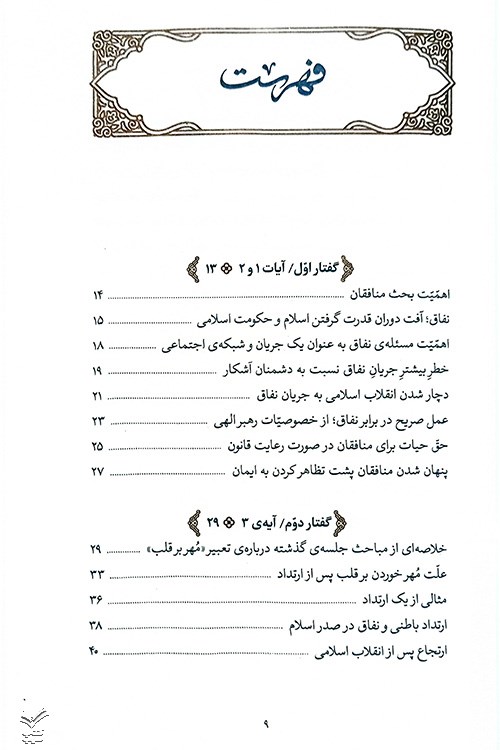 فهرست
گفتار اوّل/ آیات ۱ و ۲ ۱۳
اهمّیّت بحث منافقان ۱۴
نفاق؛ آفت دوران قدرت گرفتن اسلام و حکومت اسلامی ۱۵
اهمّیّت مسئله‌ی نفاق به عنوان یک جریان و شبکه‌ی اجتماعی ۱۸
خطرِ بیشترِ جریانِ نفاق نسبت به دشمنان آشکار ۱۹
دچار شدن انقلاب اسلامی به جریان نفاق ۲۱
عمل صریح در برابر نفاق؛ از خصوصیّات رهبر الهی ۲۳
حقّ حیات برای منافقان در صورت رعایت قانون ۲۵
پنهان شدن منافقان پشت تظاهر کردن به ایمان ۲۷
گفتار دوّم/ آیه‌ی ۳ ۲۹
خلاصه‌ای از مباحث جلسه‌ی گذشته درباره‌ی تعبیر «مُهر بر قلب» ۲۹
علّت مُهر خوردن بر قلب پس از ارتداد ۳۳
مثالی از یک ارتداد ۳۶
ارتداد باطنی و نفاق در صدر اسلام ۳۸
ارتجاع پس از انقلاب اسلامی ۴۰
۹